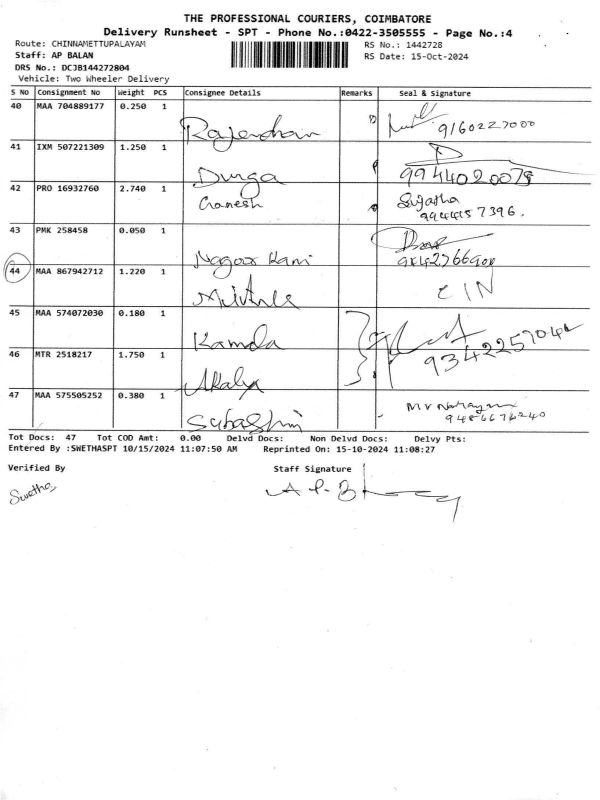 THE PROFESSIONAL COURIERS, COIMBATORE
Delivery Runsheet - SPT - Phone No.:0422-3505555 - Page No.:4
Route: CHINNAMETTUPALAYAM RS No.: 1442728
Staff: AP BALAN RS Date: 15-Oct-2024
DRS No.: DCJB144272804
Vehicle: Two Wheeler Delivery
S No Consignment No Weight PCS Consignee Details Remarks Seal & Signature
40 MAA 704889177 0.250 1
Rajendran 9160227000
41 IXM 507221309 1.250 1
Durga 9944020075
42 PRO 16932760 2.740 1 Ganesh Sujatha
9944457396.
43 PMK 258458 0.050 1
Nagoor Kani
44 MAA 867942712 1.220 1
45 MAA 574072030 0.180 1
Kamala 934225704
46 MTR 2518217 1.750 1
Akalya
47 MAA 575505252 0.380 1
Subashini 9486676240
Tot Docs: 47 Tot COD Amt: 0.00 Delvd Docs: Non Delvd Docs: Delvy Pts:
Entered By :SWETHASPT 10/15/2024 11:07:50 AM Reprinted On: 15-10-2024 11:08:27
Verified By Staff Signature
Swetha